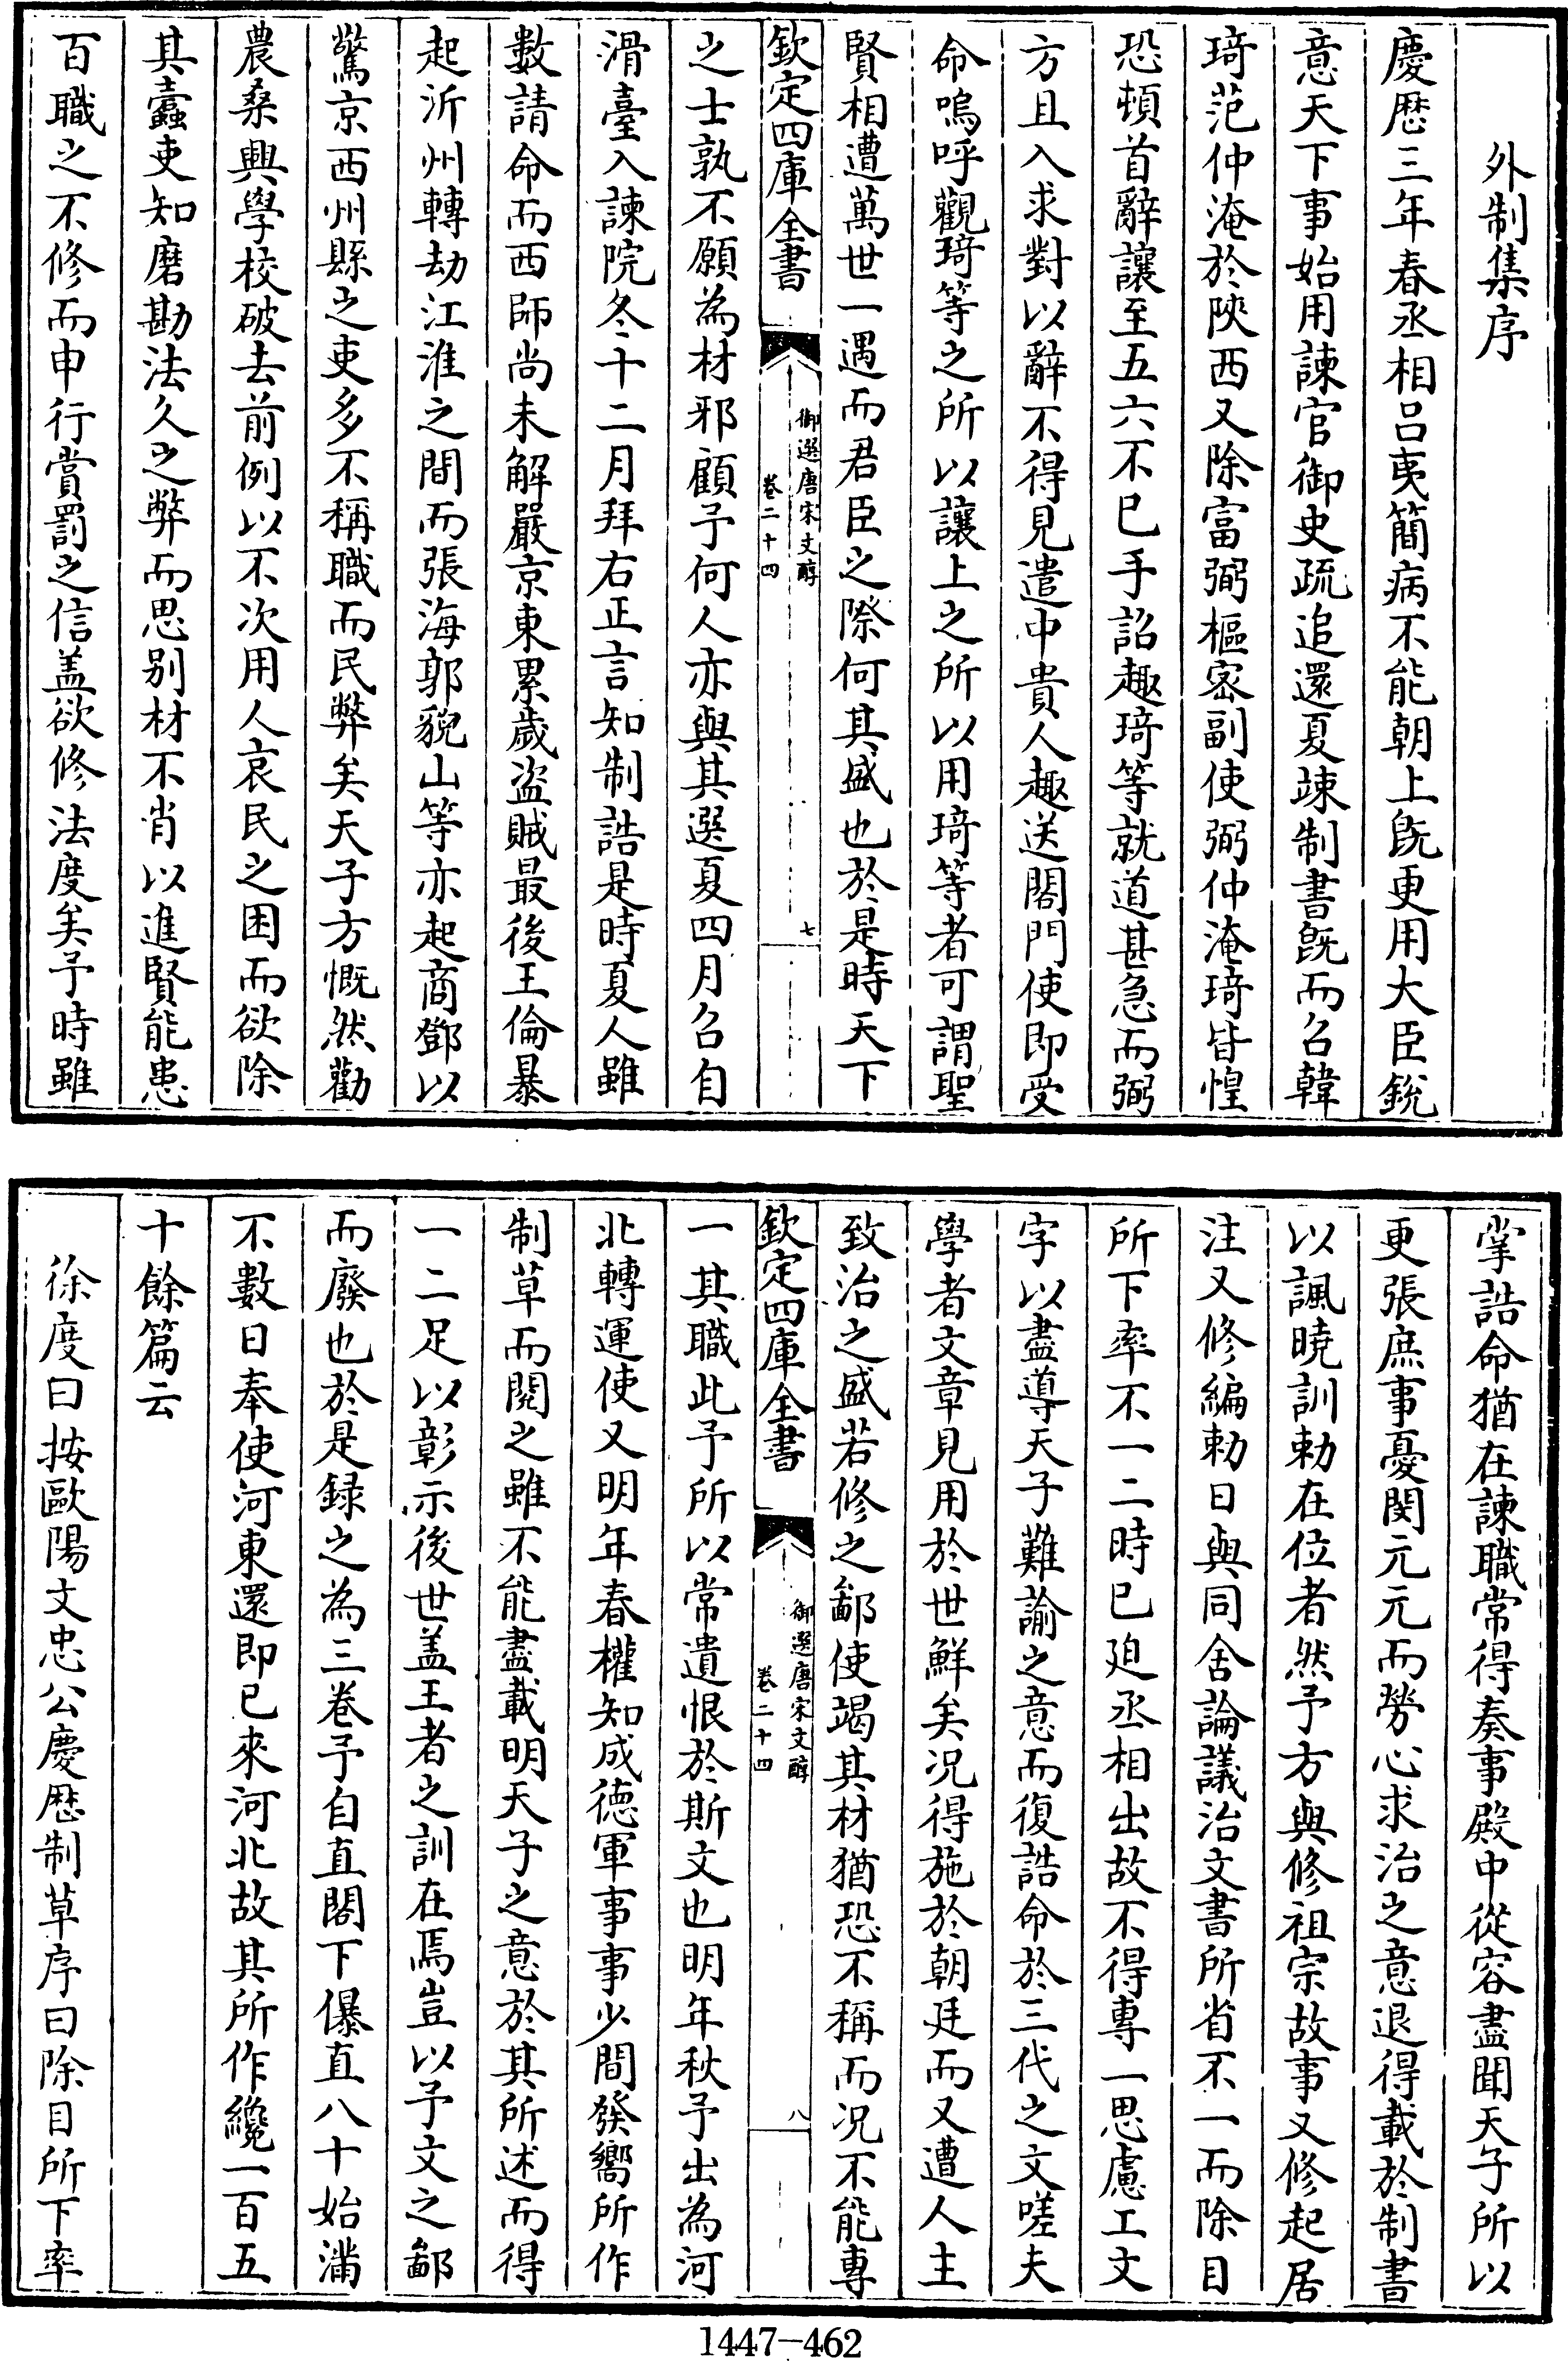 外制集序
慶厯三年春丞相吕夷簡病不能朝上既更用大臣鋭
意天下事始用諫官御史疏追還夏竦制書既而召韓
琦范仲淹於陜西又除富弼樞宻副使弼仲淹琦皆惶
恐頓首辭讓至五六不已手詔趣琦等就道甚急而弼
方且入求對以辭不得見遣中貴人趣送閤門使即受
命嗚呼觀琦等之所以讓上之所以用琦等者可謂聖
賢相遭萬世一遇而君臣之際何其盛也於是時天下
欽定四庫全書
御選唐宋文醇
卷二十四
七
之士孰不願為材邪顧予何人亦與其選夏四月召自
滑臺入諫院冬十二月拜右正言知制誥是時夏人雖
數請命而西師尚未解嚴京東累歲盗賊最後王倫暴
起沂州轉劫江淮之間而張海郭貌山等亦起商鄧以
驚京西州縣之吏多不稱職而民弊矣天子方慨然勸
農桑興學校破去前例以不次用人哀民之困而欲除
其蠹吏知磨勘法久之弊而思别材不肖以進賢能患
百職之不修而申行賞罰之信盖欲修法度矣予時雖
掌誥命猶在諫職常得奏事殿中從容盡聞天子所以
更張庶事憂閔元元而勞心求治之意退得載於制書
以諷曉訓勅在位者然予方與修祖宗故事又修起居
注又修編勅日與同舍論議治文書所省不一而除目
所下率不一二時已廹丞相出故不得專一思慮工文
字以盡導天子難諭之意而復誥命於三代之文嗟夫
學者文章見用於世鮮矣况得施於朝廷而又遭人主
致治之盛若修之鄙使竭其材猶恐不稱而况不能專
欽定四庫全書
御選唐宋文醇
卷二十四
八
一其職此予所以常遺恨於斯文也明年秋予出為河
北轉運使又明年春權知成德軍事事少間發嚮所作
制草而閱之雖不能盡載明天子之意於其所述而得
一二足以彰示後世盖王者之訓在焉豈以予文之鄙
而廢也於是録之為三巻予自直閤下儤直八十始滿
不數日奉使河東還即已來河北故其所作纔一百五
十餘篇云
徐度曰按歐陽文忠公慶厯制草序曰除目所下率
1447-462